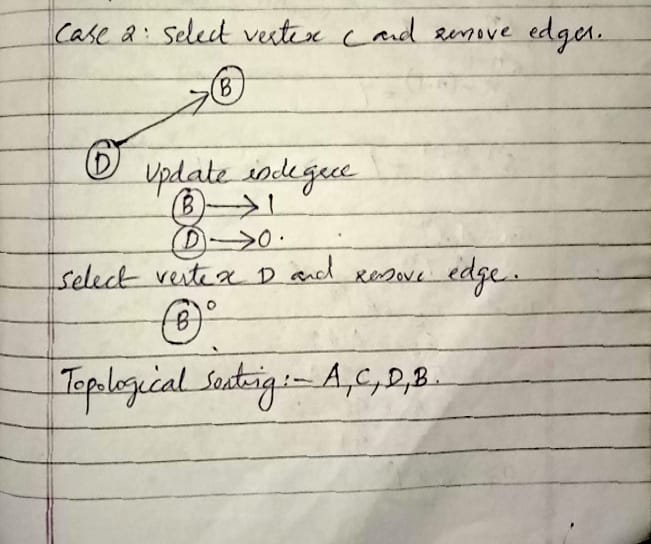 Case 2: Select vertex C and remove edges.
B
D
Update indegree
B → 1
D → 0.
select vertex D and remove edge.
B 0
Topological Sorting:- A, C, D, B.